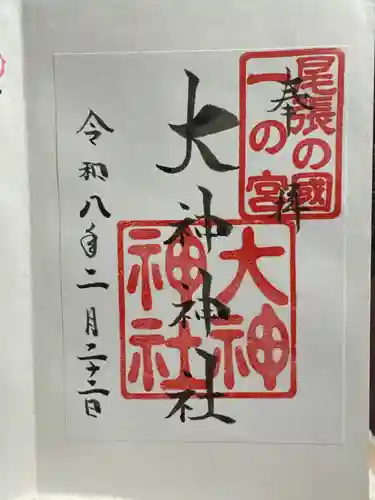 奉拝
尾張の國
一の宮
大神神社
大神
神社
令和八年二月二十二日